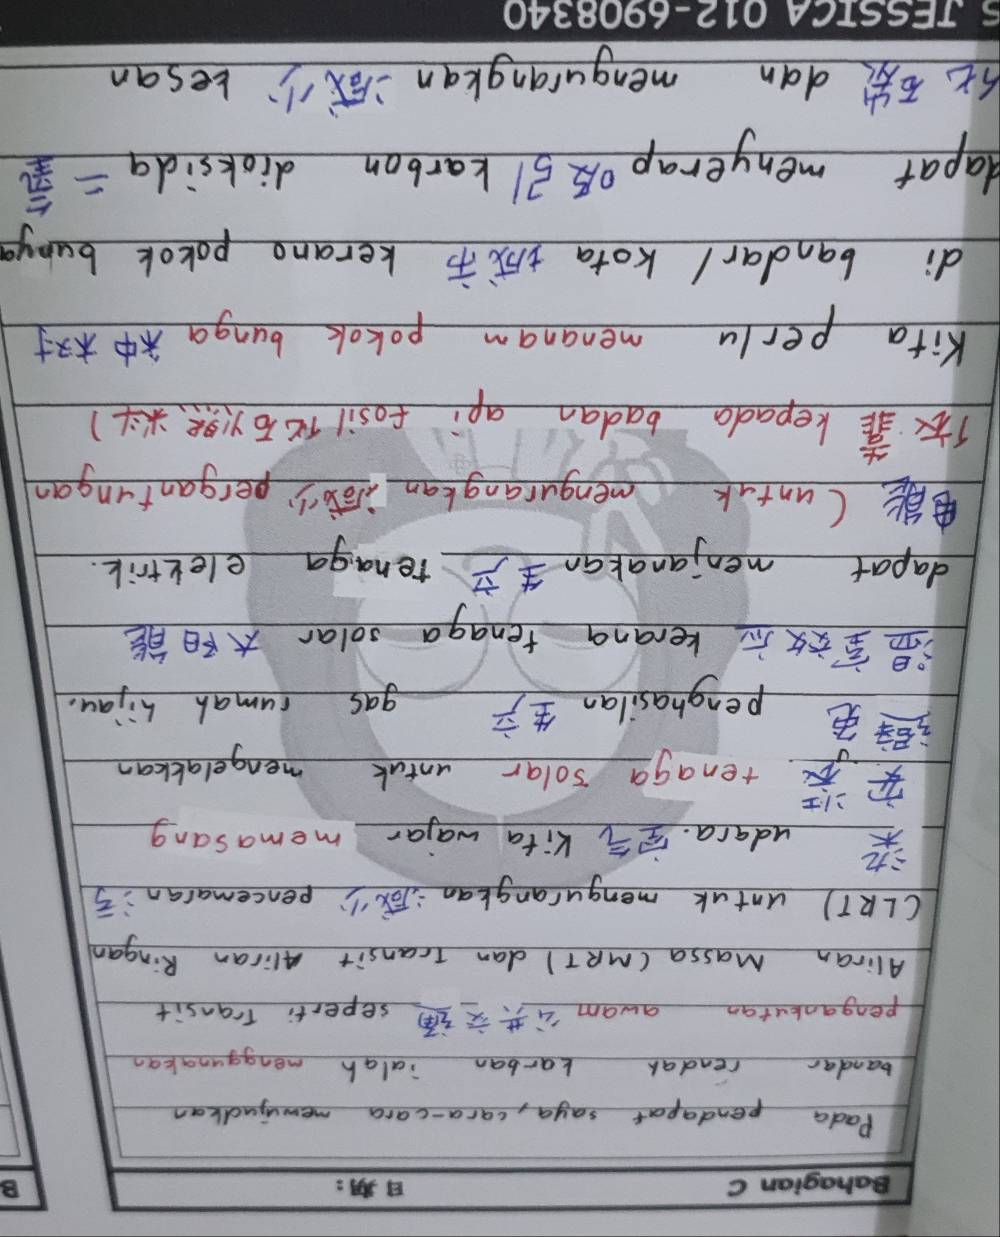 Bahagian C 日期：
Pada pendapat saya, cara-cara mewujudkan
bandar rendah karban ialah menggunakan
pengankutan awam 公共交通 seperti Transit
Aliran Massa (MRT) dan Transit Aliran Ringan
(LRT) untuk mengurangkan 减少 pencemaran 污
染 udara. 空气 Kita wajar memasang
安装 tenaga solar untuk mengelakkan
避免 penghasilan 生产 gas rumah hijau.
温室效应 kerana tenaga solar 太阳能
dapat menjanakan 生产 tenaga eletrik.
电能 (untuk mengurangkan 减少 pergantungan
依靠 kepada badan api fosil 化石燃料)
Kita perlu menanam pokok bunga 种树
di bandar/kota 城市 kerano pokok bunya
dapat menyerap 吸引 karbon dioksida 二氧
化碳 dan mengurangkan 减少 kesan
S JESSICA 012-6908340
B